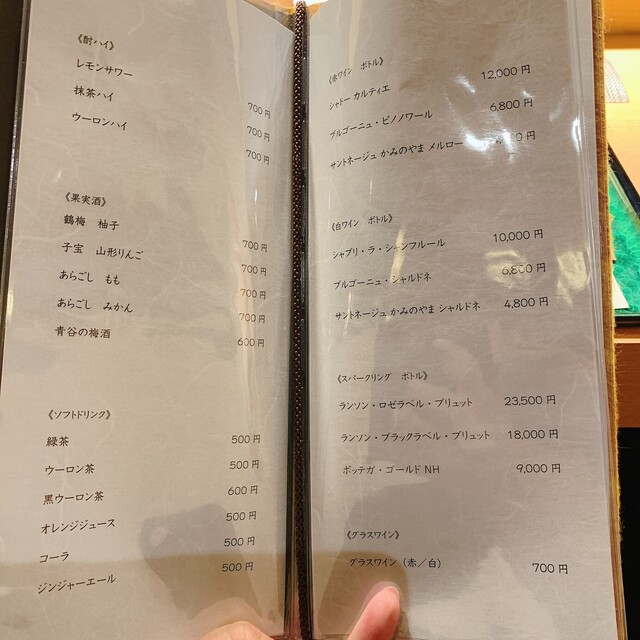 《酎ハイ》
レモンサワー 700円
抹茶ハイ 700円
ウーロンハイ 700円
《果実酒》
鶴梅 柚子 700円
子宝 山形りんご 700円
あらごし もも 700円
あらごし みかん 700円
青谷の梅酒 600円
《ソフトドリンク》
緑茶 500円
ウーロン茶 500円
黒ウーロン茶 600円
オレンジジュース 500円
コーラ 500円
ジンジャーエール 500円
《赤ワイン ボトル》
シャトー カルティエ 12,000円
ブルゴーニュ・ピノノワール 6,800円
サントネージュ かみのやま メルロー 円
《白ワイン ボトル》
シャブリ・ラ・シャンフルール 10,000円
ブルゴーニュ・シャルドネ 6,800円
サントネージュ かみのやま シャルドネ 4,800円
《スパークリング ボトル》
ランソン・ロゼラベル・ブリュット 23,500円
ランソン・ブラックラベル・ブリュット 18,000円
ボッテガ・ゴールド NH 9,000円
《グラスワイン》
グラスワイン（赤／白） 700円